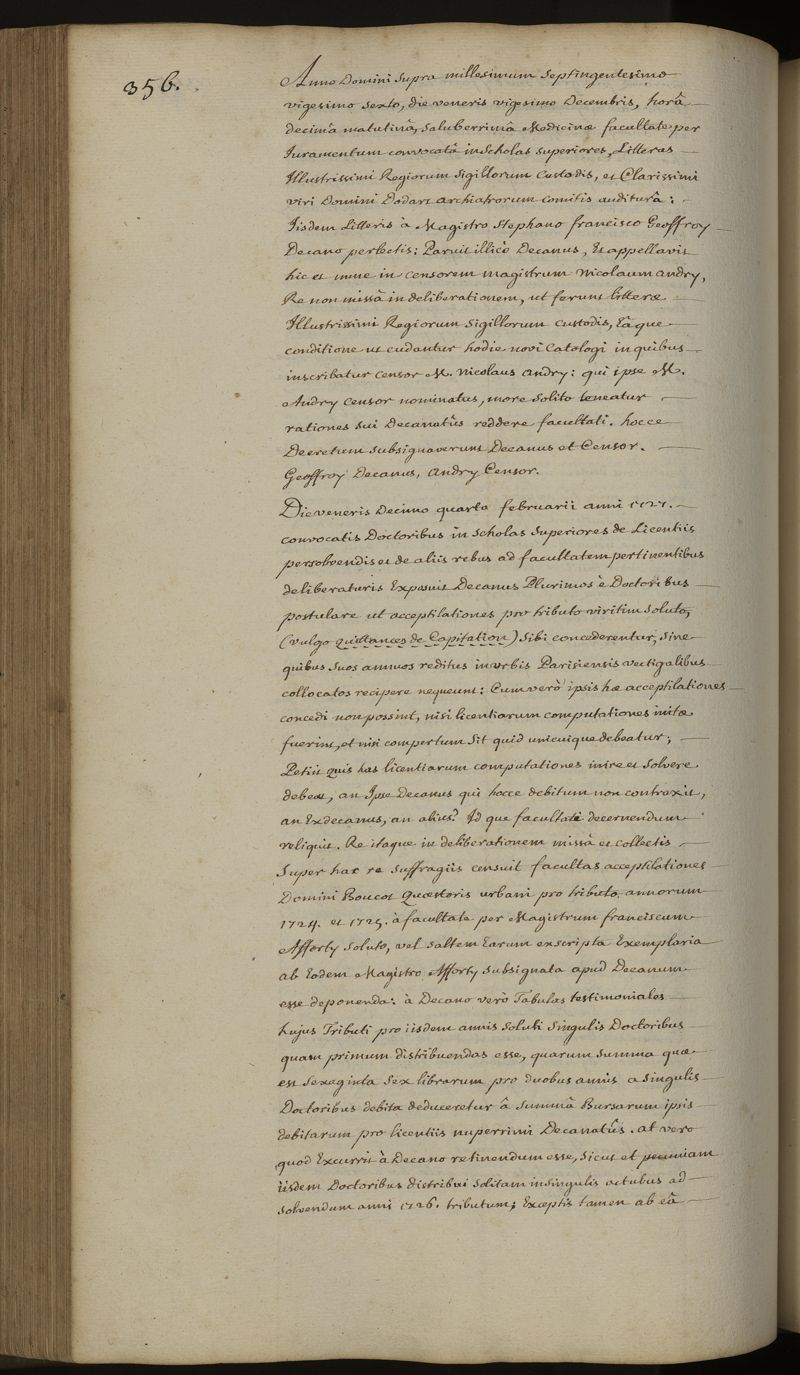 356.
Anno Domini supra millesimum septingentesimo
vigesimo sexto, die veneris vigesimo Decembris, horâ
decimâ matutinâ, saluberrimâ Medicinæ facultate per
Juramentum convocatâ in Scholas superiores, Litteras
Illustrissimi Regiorum Sigillorum Custodis, et Clarissimi
viri Domini Dodart archiatrorum comitis auditurâ:
Iisdem Litteris à Magistro Stephano francisco Geoffroy
Decano perlectis: Paruit illicò Decanus, Et appellavit
hic et nunc in Censorem magistrum Nicolaum Andry,
Re non missâ in deliberationem, ut ferunt litteræ
Illustrissimi Regiorum Sigillorum Custodis, Eâ que
conditione ut cudantur hodie novi Catalogi in quibus
inscribatur Censor M. Nicolaus Andry: qui ipse M.
Andry Censor nominatus, more solito teneatur
rationes sui Decanatûs reddere facultati. hocce
Decretum subsignaverunt Decanus et Censor.
Geoffroy Decanus, Andry Censor.
Die veneris Decimo quarto februarii anni 1727.
convocatis Doctoribus in Scholas Superiores de Licentiis
persolvendis et de aliis rebus ad facultatem pertinentibus
deliberaturis Exposuit Decanus Plurimos è Doctoribus
postulare ut acceptilationes pro tributo viritim soluto,
(vulgo quittances de Capitation) sibi concederentur, sine
quibus suos annuos reditus in urbis Parisiensis vectigalibus
collocatos recipere nequeunt: Cum verò ipsis hæ acceptilationes
concedi non possint, nisi licentiarum computationes initæ
fuerint, et nisi compertum sit quid unicuique debeatur;
Petiit quis has licentiarum computationes inire et solvere
debeat, an Ipse Decanus qui hocce debitum non contraxit,
an Exdecanus, an alius? Id que facultati decernendum
reliquit. Re itaque in deliberationem missâ et collectis
Super hac re suffragiis censuit facultas acceptilationes
Domini Boucot Quæstoris urbani pro tributo annorum
1724. et 1725. à facultate per Magistrum franciscum
Afforty soluto, vel saltem Earum exscripta Exemplaria
ab Eodem Magistro Afforty subsignata apud Decanum
esse deponenda: à Decano verò Tabulas testimoniales
hujus Tributi pro iisdem annis soluti singulis Doctoribus
quam primum distribuendas esse, quarum summa quæ
est sexaginta sex librarum pro duobus annis a singulis
Doctoribus debita deduceretur à summâ Bursarum ipsis
debitarum pro licentiis nuperrimi Decanatûs. at vero
quod Excurrit à Decano retinendum esse, sicut et pecuniam
iisdem Doctoribus distribui solitam in singulis actubus ad
solvendum anni 1726. tributum; Exceptis tamen ab eâ